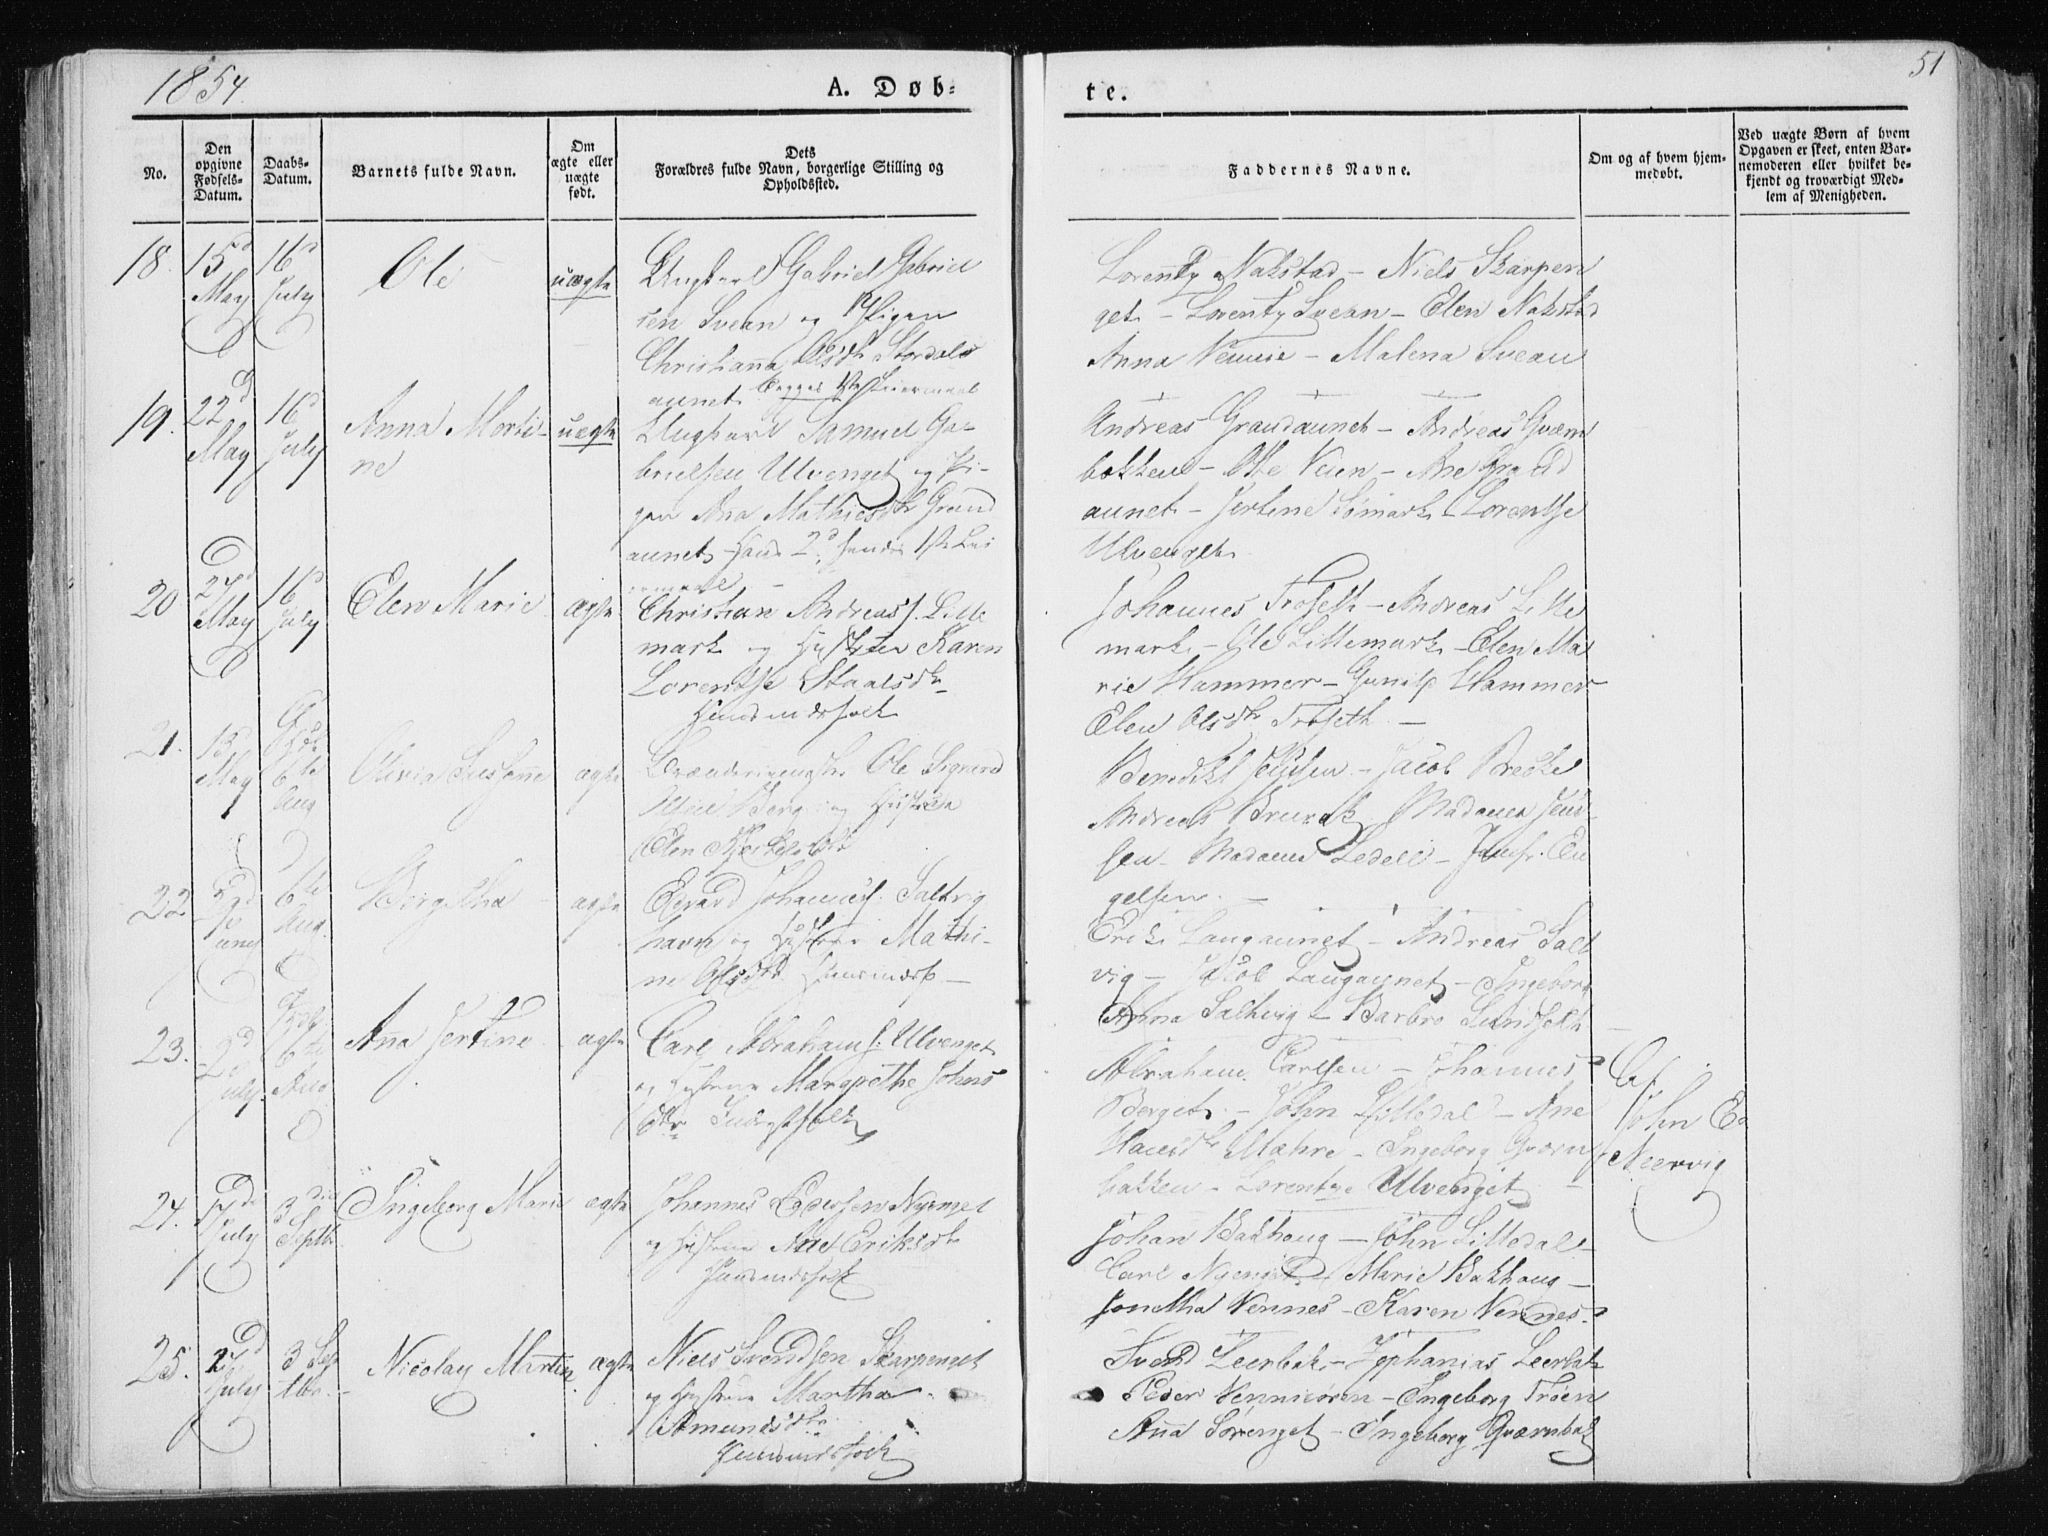 1854.
A. Døb-
te.
51
No.
Den opgivne Fødsels-Datum.
Daabs-Datum.
Barnets fulde Navn.
Om ægte eller uægte født.
Dets Forældres fulde Navn, borgerlige Stilling og Opholdssted.
Faddernes Navne.
Om og af hvem hjem-medøbt.
Ved uægte Børn af hvem Opgaven er skeet, enten Bar-nemoderen eller hvilket be-kjendt og troværdigt Med-lem af Menigheden.
18. 15d May
16d July
Ole
uægte
Ungkarl Gabriel Gabriel
sen Svean og Pigen
Christianna Olsdtr Stordals
aunet begges 1ste Leiermaal
Lorentz Nakstad - Niels Skarpen
get - Lorentz Svean - Elen Nakstad
Anna Vennie - Malena Svean
19. 22d May
16d July
Anna Morti-
ne
uægte
Ungkarl Samuel Ga-
brielsen Ulvenget og Pi-
gen Ana Mathiesdtr Grand
aunet Hans 2d hendes 1ste Lei
ermaal
Andreas Grandaunet - Andreas Qværn
bakken - Otte Veien - Ane Grand
aunet - Jertine Lømark - Lorentse
Ulvenget
20 27d May
16d July
Elen Marie
ægte
Christian Andreass. Lille
mark og Hustru Karen
Lorentse Staalsdtr
Huusmandsfolk
Johannes Troseth - Andreas Lille
mark - Ole Lillemark - Elen Ma
rie Hammer - Gunild Hammer
Elen Olsdtr Troseth -
21. 15 May
6te Aug
Olivia Susanne
ægte
Ole Sigvard
Berg og Hustru
Elen
Benedikt - Jacob Brecke
Andreas - Madame Jen-
sen - Madame Ledell - Jomfr. En
gelsen. -
22
6te Aug.
Birgitha
ægte
Edvard Johanness. Saltvig
havn og Hustrue Mathi-
ne Olsdtr Huusmdsf. -
Erik Langaunet - Andreas Salt
vig - Jacob Langaunet - Ingeborg
Anna Saltvig - Barbro Sundseth
23. 2d July
6te Aug
Ana Jertine
ægte
Carl Abrahams. Ulvenget
og Hustrue Margrethe Johns
dtr Inderstfolk
Abraham Carlsen - Johannes
Berget - John Lilledal - Ane
Hansdtr Mæhre - Ingeborg Qværn
bakken - Lorentze Ulvenget -
Af
John
Neervig
24. 17de July
3die Septbr
Ingeborg Marie
ægte
Johannes Pedersen Nyenget
og Hustrue Ane Eriksdtr
Huusmandsfolk
Johan Bakhaug - John Lilledal -
Carl Nyenget - Marie Bakhaug -
Jonetha Vennes - Karen Vennes -
25. July
3 Sep
tbr. -
Nicolay Martin
ægte
Niels Svendsen Skarpenget
og Hustrue Martha
Amundsdtr
Huusmandsfolk
Svend Leerbak - Zephanias Leerbak
Peder Venniøren - Ingeborg Trøen
Ana Sørenget - Ingeborg Qværnbak